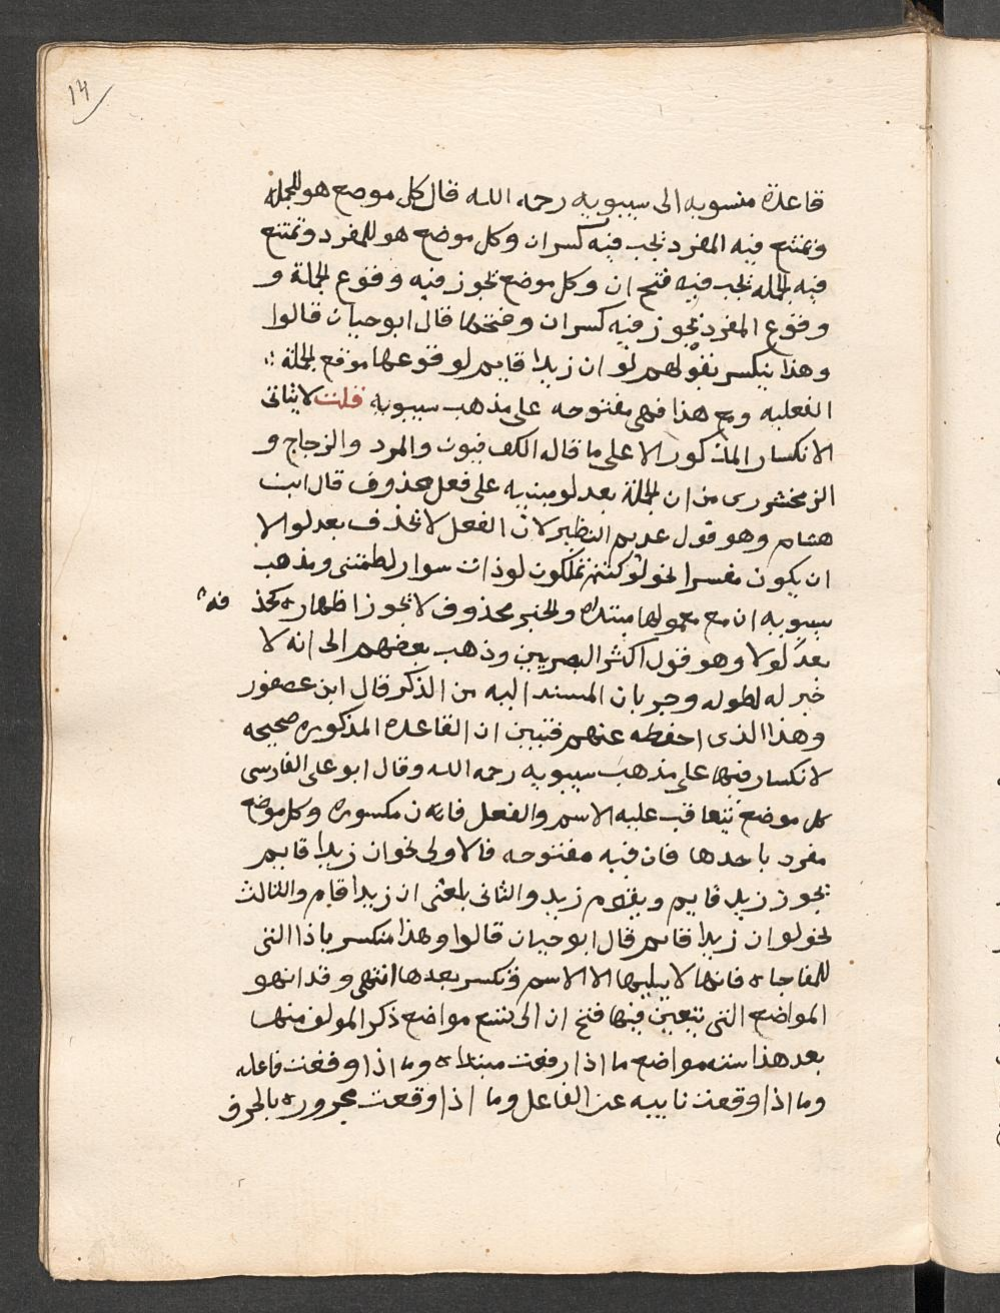 14
قاعدة منسوبه الى سيبويه رحمه الله قال كل موضع هو للجمله
وتمتنع فيه المفرد يجب فيه كسران وكل موضع هو للمفرد وتمتنع
فيه الجمله يجب فيه فتح ان وكل موضع يجوز فيه وقوع الجملة و
وقوع المفرد يجوز فيه كسران وفتحها قال ابو حيان قالوا
وهذا ينكسر بقولهم لو ان زيدا قايم لوقوعها موقع الجملة
الفعليه ومع هذا فهي مفتوحه على مذهب سيبويه قلت لا يتاتى
الانكسار المذكور الا على ما قاله الكوفيون والمبرد والزجاج و
الزمخشرى من ان الجملة بعد لو مبنيه على فعل محذوف قال ابن
هشام وهو قول عديم النظير لان الفعل لا يحذف بعد لو الا
ان يكون مفسرا نحو لو كنتم تملكون لو ذات سوار لطمتنى ومذهب
سيبويه ان مع معمولها مبتداء والخبر محذوف لا يجوز اظهاره كحذفه
بعد لولا وهو قول اكثر البصريين وذهب بعضهم الى انه لا
خبر له لطوله وجريان المسند اليه من الذكر قال ابن عصفور
وهذا الذى احفظه عنهم فتبين ان القاعده المذكوره صحيحه
لا انكسار فيها على مذهب سيبويه رحمه الله وقال ابو على الفارسى
كل موضع يتعاقب عليه الاسم والفعل فان مكسوره وكل موضع
مفرد باحدها فان فيه مفتوحه فالاولى نحو ان زيدا قايم
يجوز زيد قايم ويقوم زيد والثانى بلغنى ان زيدا قام والثالث
نحو لو ان زيدا قايم قال ابو حيان قالوا وهذا منكسر باذا التى
للمفاجاه فانها لا يليها الا الاسم وتكسر بعدها انتهى وقد انهو
المواضع التى يتعين فيها فتح ان الى تسع مواضع ذكر المولف منها
بعد هذا سته مواضع ما اذا رفعت مبتداه وما اذا وقعت فاعله
وما اذا وقعت نايبه عن الفاعل وما اذا وقعت مجروره بالحرف